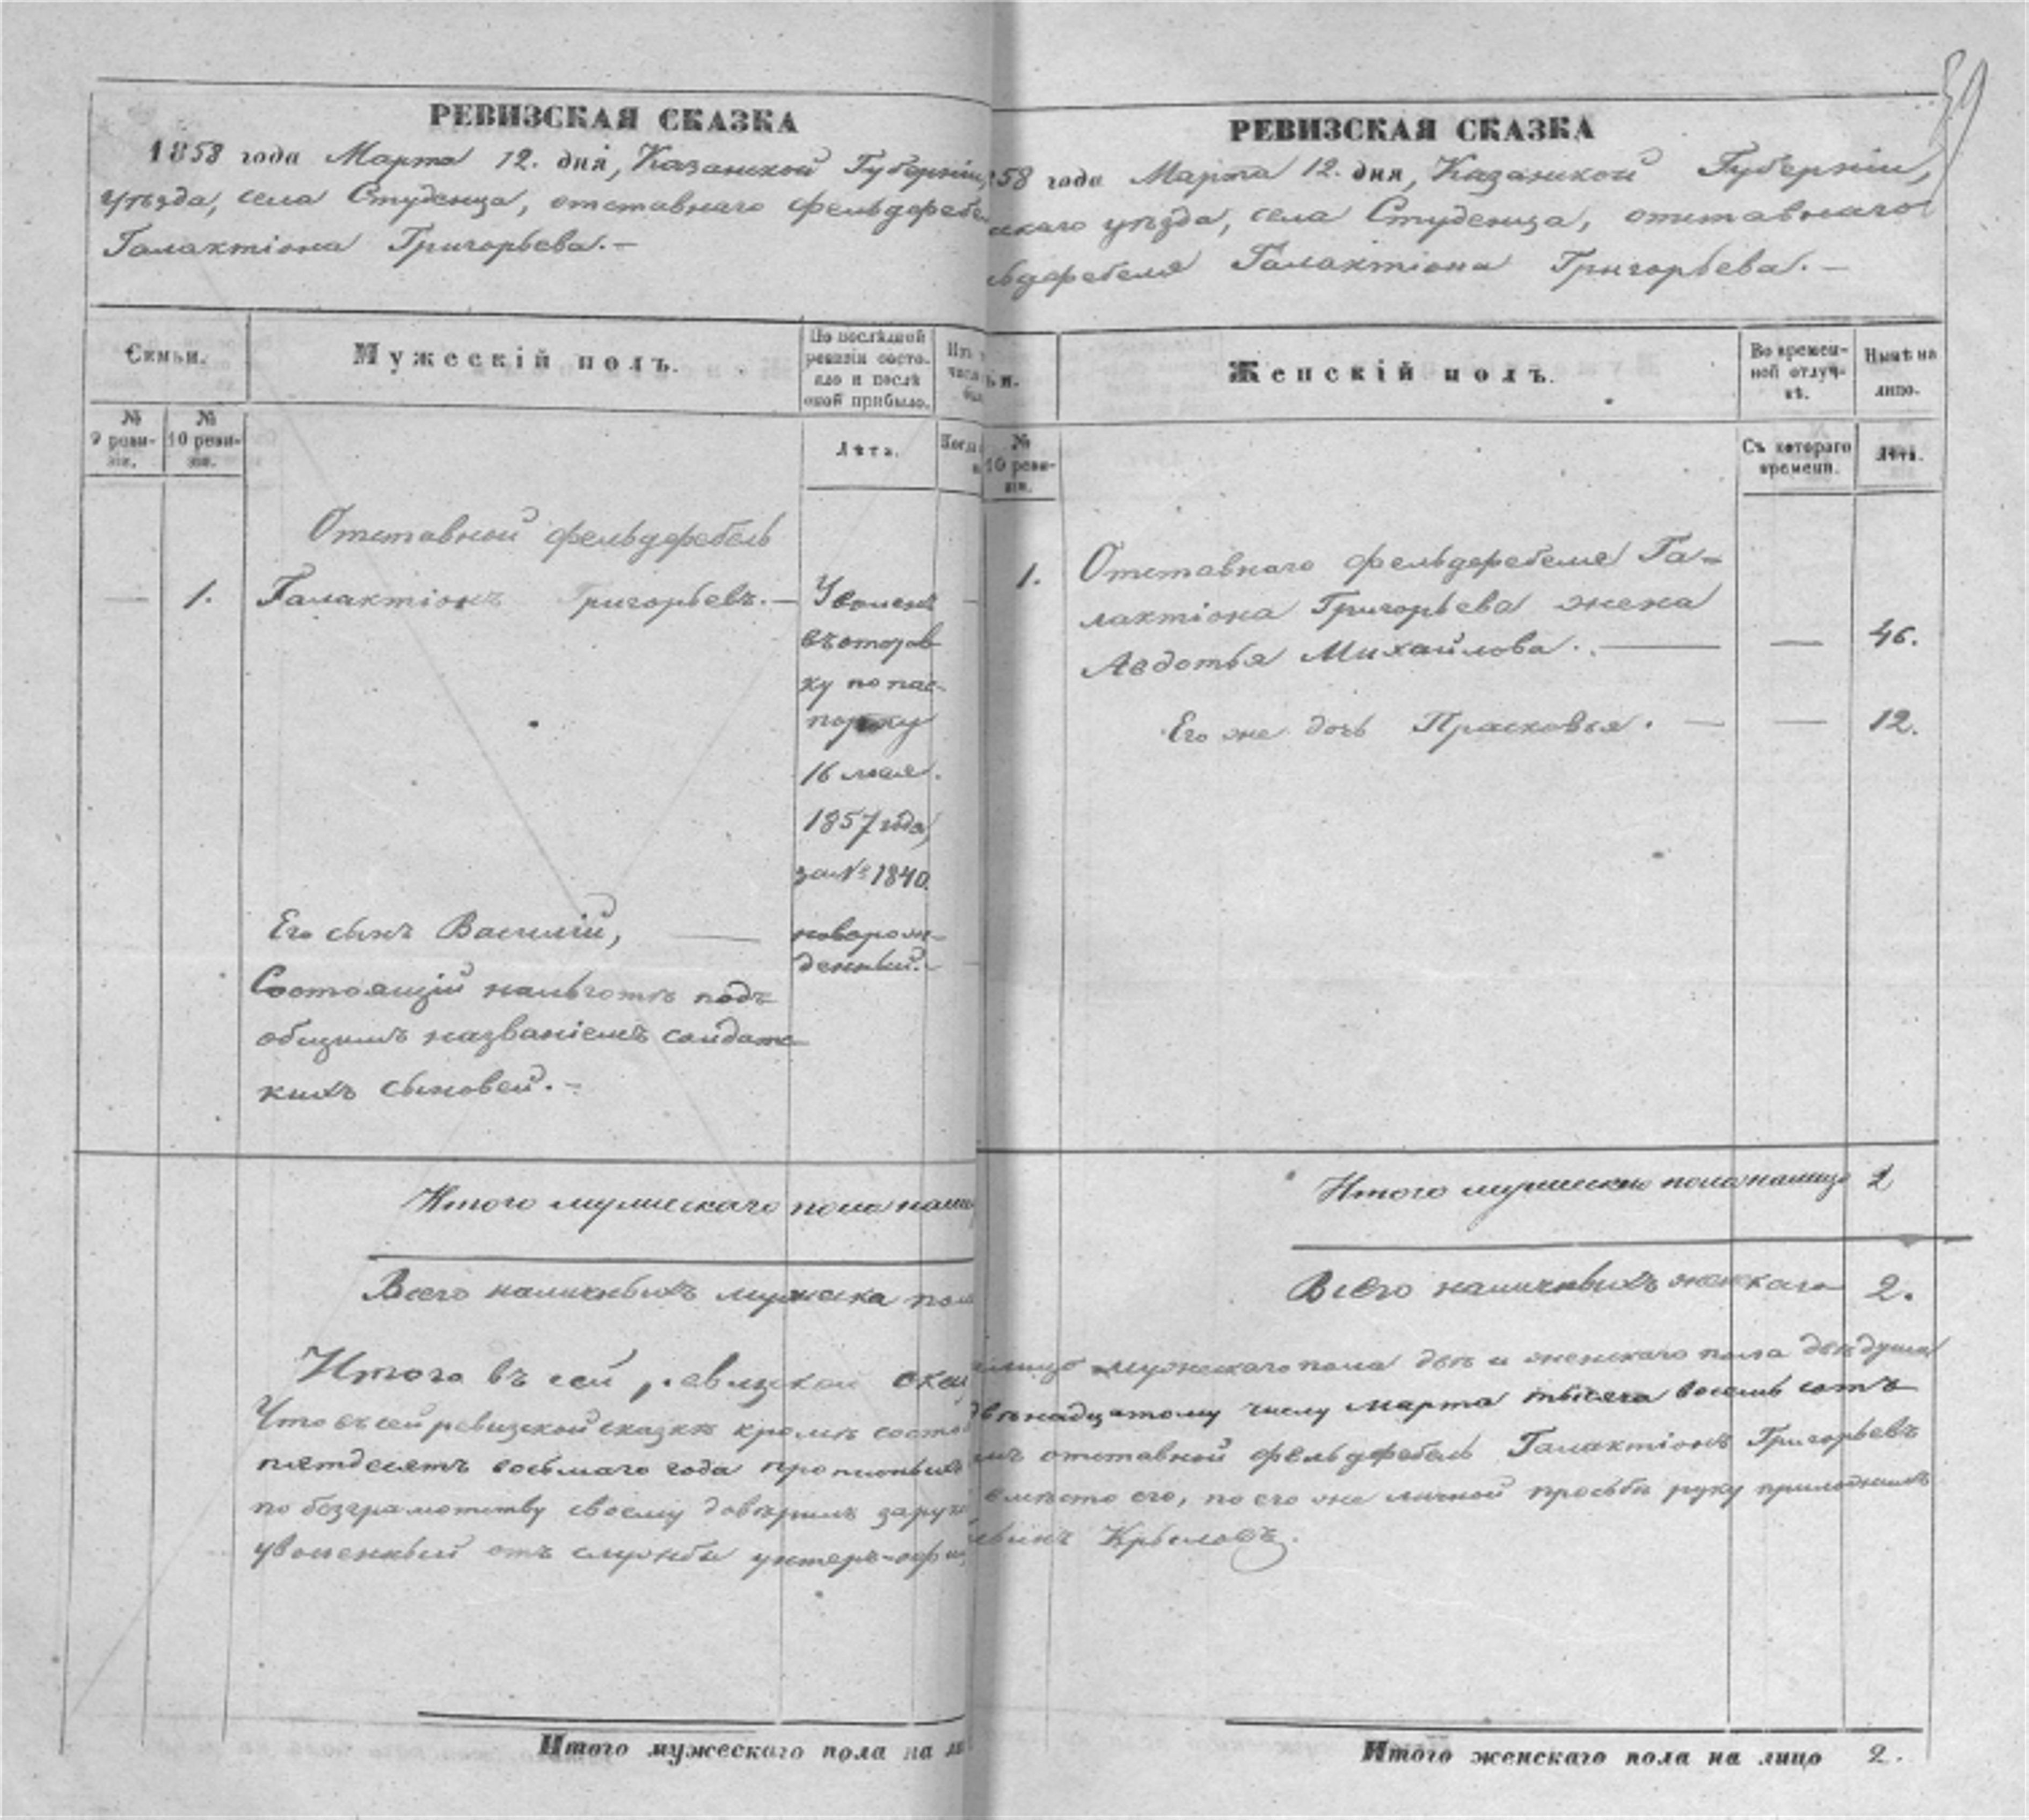 РЕВИЗСКАЯ СКАЗКА
1858 года Марта 12. дня, Казанской Губерніи,
уѣзда, села Студенца, отставнаго фельдфебе
Галактіона Григорьева. —
Семьи.
Мужескій полъ.
По послѣдней ревизіи состояло и послѣ оной прибыло.
№ 9 ревизіи.
№ 10 ревизіи.
Лѣта.
Отставной фельдфебель
— 1. Галактіонъ Григорьевъ. —
Уволенъ
въ отстав
ку по пас-
порту
16 мая
1857 года,
за № 1840.
Его сынъ Василій, — новорож-
денный. —
Состоящій на льготѣ подъ
общимъ названіемъ солдатс
кихъ сыновей. —
Итого мужескаго пола нали
Всего наличныхъ мужеска пол
Итого въ сей ревизской ска
Что въ сей ревизской сказкѣ кромѣ состо
пятдесятъ восьмаго года прописныхъ
по безграмотству своему довѣрилъ заручи
уволенный отъ службы унтеръ-офи
Итого мужескаго пола на ли
59
РЕВИЗСКАЯ СКАЗКА
58 года Марта 12. дня, Казанской Губерніи,
скаго уѣзда, села Студенца, отставнаго
ьдфебеля Галактіона Григорьева. —
ьи.
Женскій полъ.
Во временной отлучкѣ.
Нынѣ на лицо.
№ 10 ревизіи.
Съ котораго времени.
Лѣта.
1. Отставнаго фельдфебеля Га-
лактіона Григорьева жена
Авдотья Михайлова. — — 46.
Его же дочь Прасковья. — — 12.
Итого мужескаго пола налицо 2
Всего наличныхъ женскаго 2.
лицо мужескаго пола двѣ и женскаго пола двѣ души
двѣнадцатому числу марта тысяча восемь сотъ
отставной фельдфебель Галактіонъ Григорьевъ
вмѣсто его, по его же личной просьбѣ руку приложилъ
Крыловъ.
Итого женскаго пола на лицо 2.